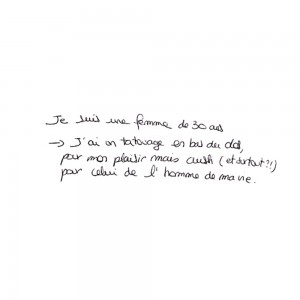 Je suis une femme de 30 ans
→ J'ai un tatouage en bas du dos,
pour mon plaisir mais aussi (et surtout ?!)
par celui de l'homme de ma vie.